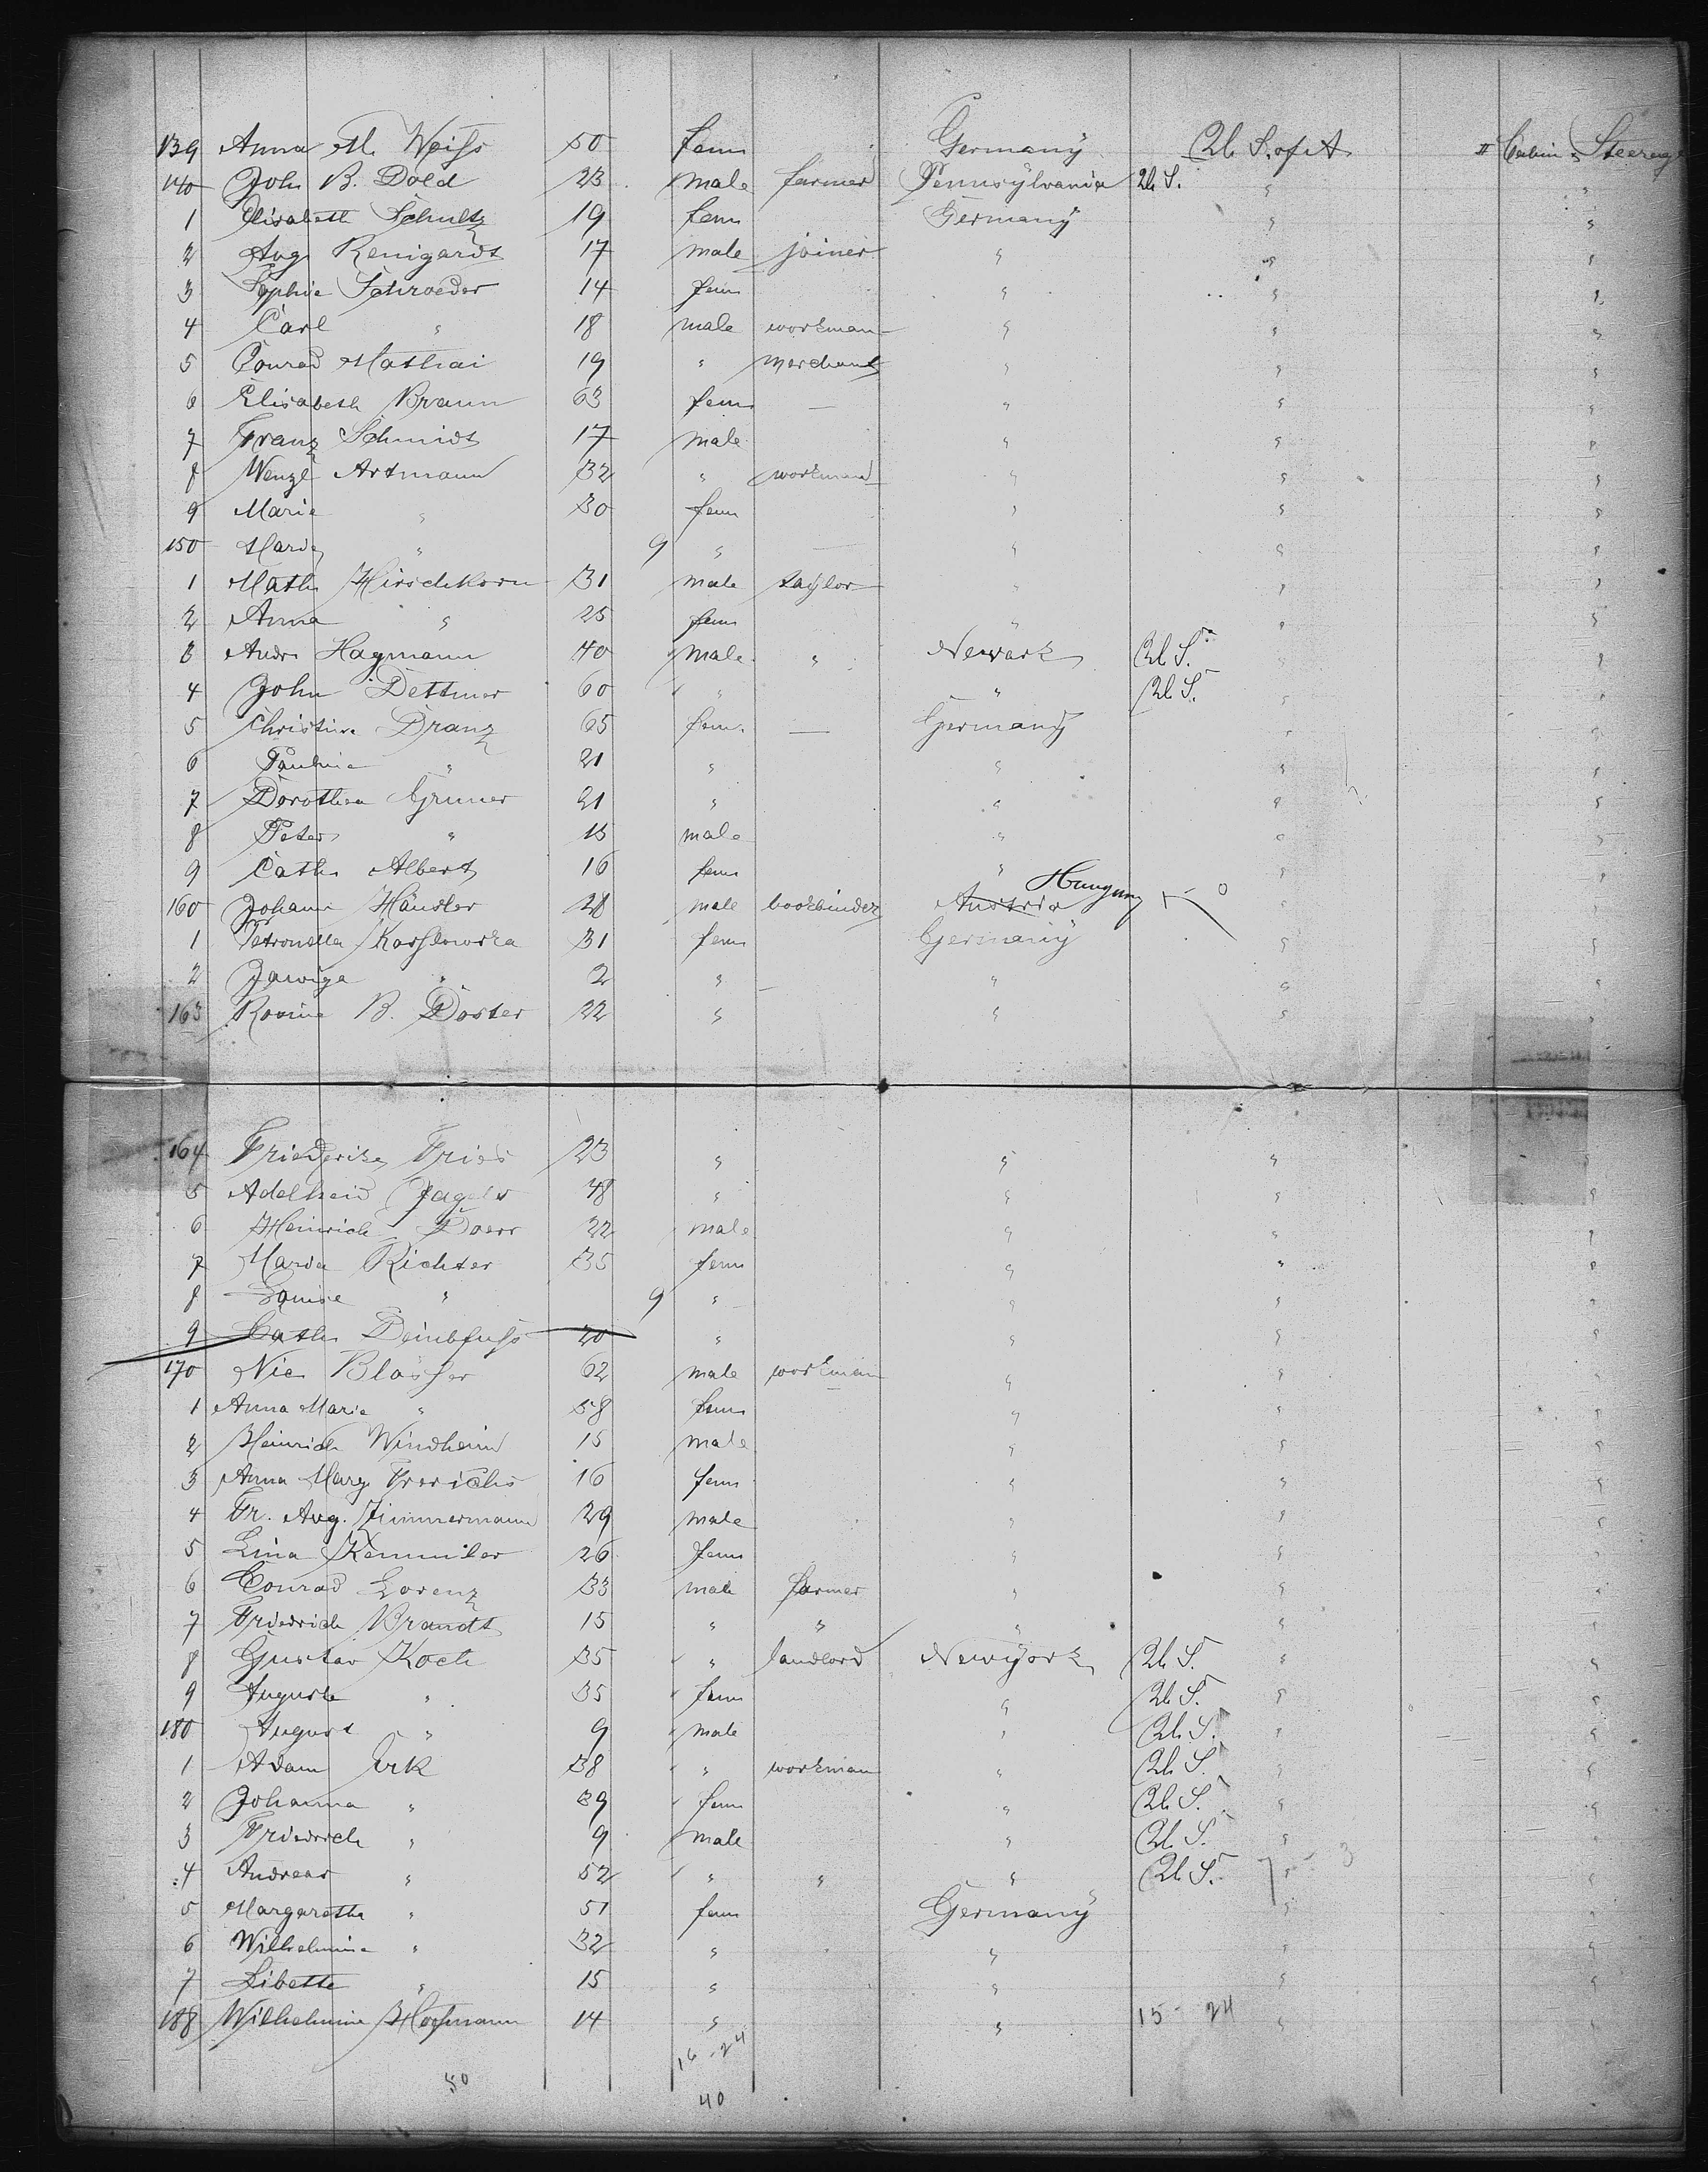 139 Anna M. Weiss 50 fem Germany U. S. of A. II Cabin & Steerage
140 John B. Dold 23 male farmer Pennsylvania U. S. "
1 Elisabeth Schultz 19 fem Germany " "
2 Aug. Renigardt 17 male joiner " " "
3 Sophie Schroeder 14 fem " " "
4 Carl " 18 male workman " " "
5 Conrad Mathai 19 " merchant " " "
6 Elisabeth Braun 63 fem — " " "
7 Franz Schmidt 17 male " " "
8 Wenzl Artmann 32 " workman " " "
9 Marie " 30 fem " " "
150 Marie " 9 " — " " "
1 Math. Hirschkorn 31 male taylor " " "
2 Anna " 25 fem " " "
3 Andr. Hagmann 40 male " Newark U. S. " "
4 John Dettmer 60 " " U. S. " "
5 Christine Dranz 65 fem. — Germany " "
6 Pauline " 21 " " " "
7 Dorothea Gruner 21 " " " "
8 Peter " 15 male " " "
9 Cath. Albert 16 fem " " "
160 Johann Händler 28 male bookbinder Austria Hungary " "
1 Petronella 31 fem Germany " "
2 Jawiga " 2 " — " " "
163 B. Doster 22 " " " "
164 Friederike Fries 23 " " "
5 Adelheid Jagels 48 " " " "
6 Heinrich Doerr 22 male " " "
7 Maria Richter 35 fem " " "
8 Louise " 9 " " " "
9 Cath. 20 " " " "
170 Nic. Blasser 62 male workman " " "
1 Anna Marie " 58 fem " " "
2 Heinrich Windheim 15 male " " "
3 Anna Marg. Frerichs 16 fem " " "
4 Fr. Aug. Zimmermann 29 male " " "
5 Lina Kemmler 26 fem " " "
6 Conrad Lorenz 33 male farmer " " "
7 Friedrich Brandt 15 " " " " "
8 Gustav Koch 35 " landlord Newyork U. S. " "
9 Auguste " 35 fem " U. S. " "
180 August " 9 male " U. S. " "
1 Adam Erk 38 " workman " U. S. " "
2 Johanna " 39 fem " U. S. " "
3 Friedrich " 9 male " U. S. " "
4 Andreas " 52 " " " U. S. " "
5 Margaretha " 51 fem Germany " "
6 Wilhelmine " 32 " " " "
7 Libette " 15 " " " "
188 Wilhelmine Hofmann 14 " " 15 - 24 " "
16 - 24
50
40